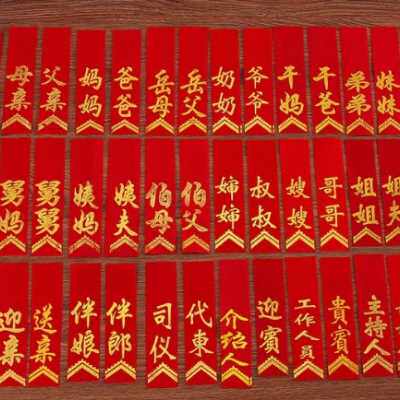 母亲 父亲 妈妈 爸爸 岳母 岳父 奶奶 爷爷 干妈 干爸 弟弟 妹妹
舅妈 舅舅 姨妈 姨夫 伯母 伯父 婶婶 叔叔 嫂嫂 哥哥 姐姐 姐夫
迎亲 送亲 伴娘 伴郎 司仪 代東 介绍人 迎賓 工作人員 貴賓 主持人